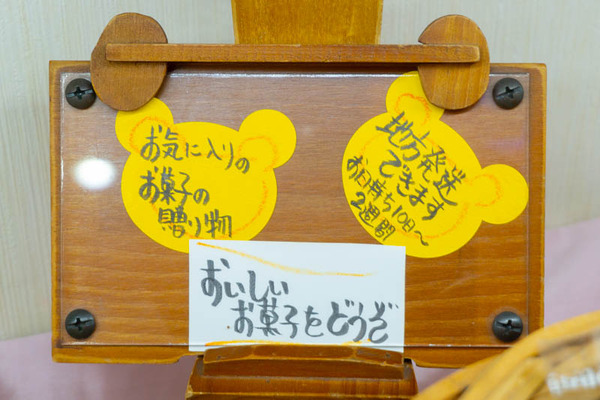 お気に入りの
お菓子の
贈り物
地方発送
できます
お日持ち10日〜
2週間
おいしい
お菓子をどうぞ